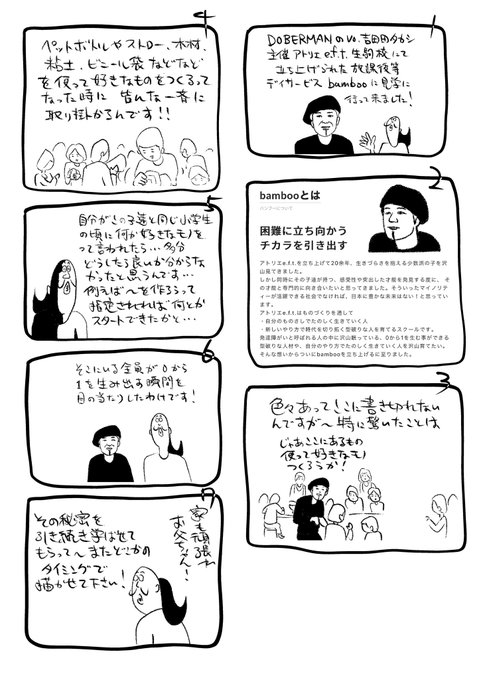 1
DOBERMANのvo.吉田田タカシ
主催アトリエe.f.t.生駒校にて
立ち上げられた放課後等
デイサービス bambooに見学に
行って来ました!
2
bambooとは
バンブーについて
困難に立ち向かう
チカラを引き出す
アトリエe.f.t.を立ち上げて20余年、生きづらさを抱える少数派の子を沢
山見てきました。
しかし同時にその子達が持つ、感受性や突出した才能を発見する度に、そ
の才能と専門的に向き合いたいと思ってきました。そういったマイノリテ
ィーが活躍できる社会でなければ、日本に豊かな未来はない!と思ってい
ます。
アトリエe.f.t.はものづくりを通して
・自分のものさしでたのしく生きていく人
・新しいやり方で時代を切り拓く型破りな人を育てるスクールです。
発達障がいと呼ばれる人の中に沢山眠っている、0から1を生む事ができる
型破りな人材や、自分のやり方でたのしく生きていく人を沢山育てたい。
そんな想いからついにbambooを立ち上げるに至りました。
3
色々あってここに書き切れない
んですが〜特に驚いたことは
じゃあここにあるもの
使って好きなモノ
つくろうか!
4
ペットボトルやストロー、木材、
粘土、ビニール袋などなど
を使って好きなものをつくるって
なった時に皆んな一斉に
取り掛かるんです!!
5
自分がこの子達と同じ小学生
の頃に何か好きなモノを
って言われたら…多分
どうしたら良いか分からな
かったと思うんです…
例えば〜を作るって
指定されれば何とか
スタートできたかと…
6
そこにいる全員が0から
1を生み出す瞬間を
目の当たりしたわけです!
7
その秘密を
引き続き学ばせて
もらって〜またどこかの
タイミングで
描かせて下さい!
お父ちゃん!